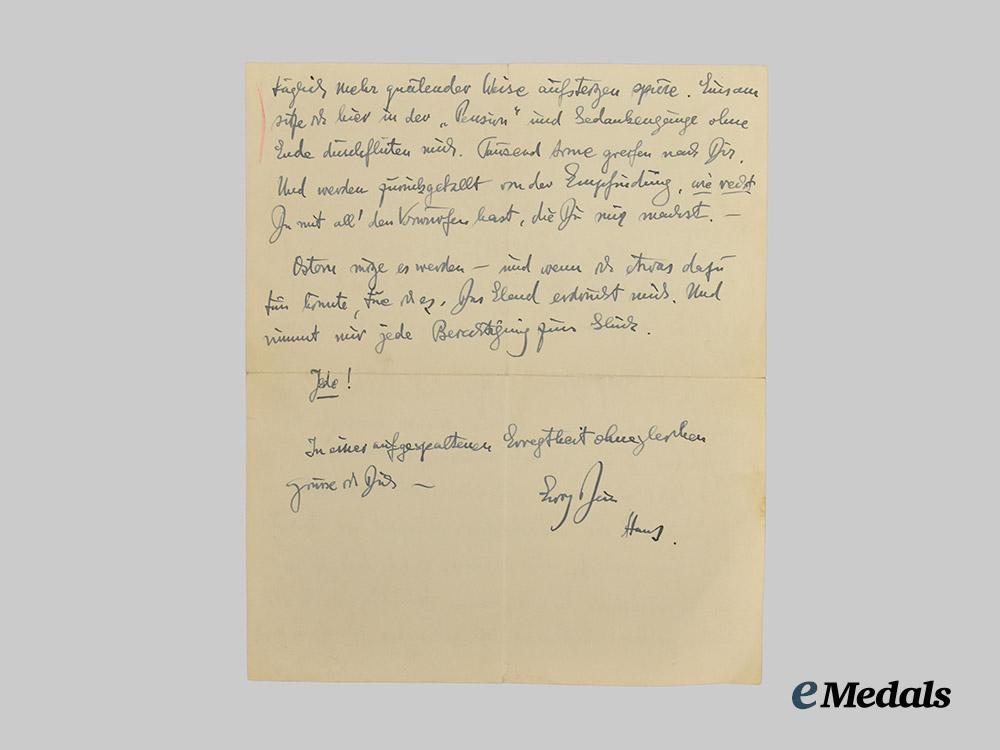 täglich mehr quälender Weise aufsteigen spüre. Einsam
sitze ich hier in der „Pension" und Gedankengänge ohne
Ende durchfluten mich. Tausend Arme greifen nach Dir.
Und werden zurückgeballt von der Empfindung, wie recht
Du mit all' den Vorwürfen hast, die Du mir machst. —
Ostern möge es werden — und wenn ich etwas dafür
tun könnte, tue ich es. Das Elend erdrückt mich. Und
nimmt mir jede Berechtigung zum Glück.
Jede!
In einer aufgespaltenen Erregtheit ohnegleichen
grüsse ich Dich —
Ewig Dein
Hans.
eMedals